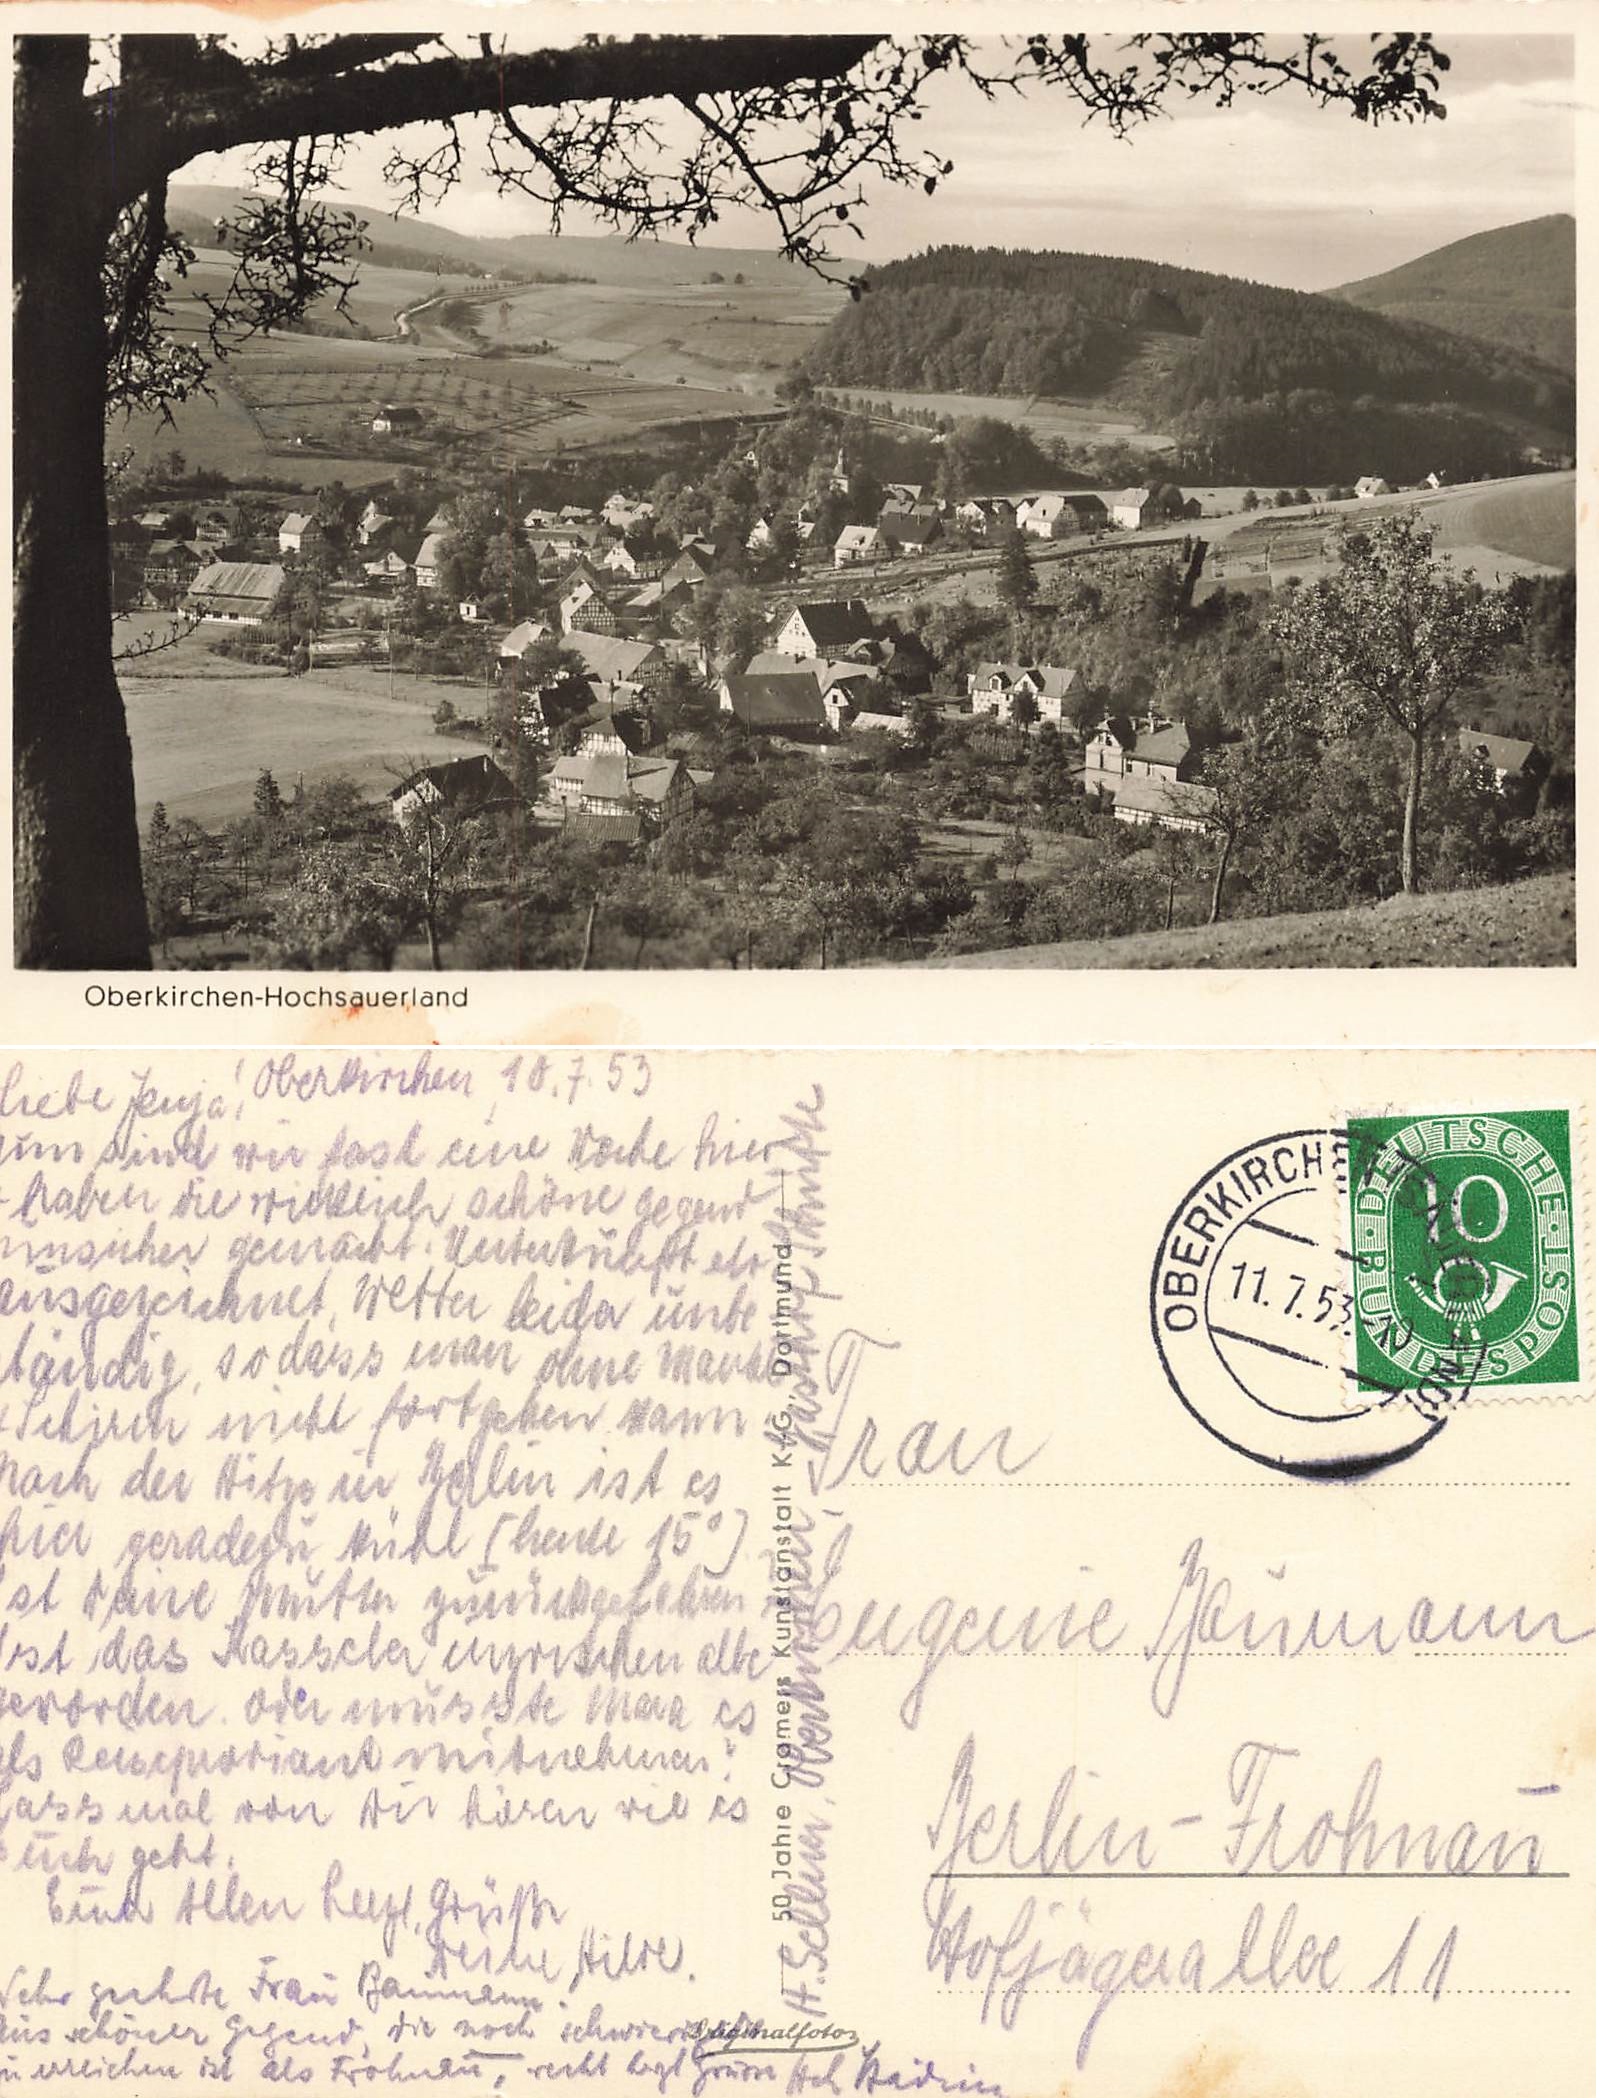 Oberkirchen-Hochsauerland
Oberkirchen, 10.7.53
Liebe Jenja!
Nun sind wir fast eine Woche hier
+ haben die wirklich schöne Gegend
unsicher gemacht. Unterkunft etc.
ausgezeichnet, Wetter leider unbe
ständig, sodass man ohne Mantel
+ Schirm nicht fortgehen kann
Nach der Hitze in Berlin ist es
hier geradezu kühl (heute 15°).
Ist Deine Mutter zurückgefahren
Ist das Kasseler inzwischen alle
geworden. Oder musste Mara es
als Reiseproviant mitnehmen?
Lass mal von Dir hören wie es
Euch geht.
Euch Allen herzl. Grüße
Deine Hilde.
Sehr geehrte Frau Baumann.
Aus schöner Gegend, die noch schwieriger
zu erreichen ist als Frohnau, recht herzl Grüsse
50 Jahre Cramers Kunstanstalt KG, Dortmund
Originalfotos
Oberkirchen, Gasthof Schütte
OBERKIRCHEN
11.7.53
DEUTSCHE BUNDESPOST
10
Frau
Eugenie Baumann
Berlin-Frohnau
Hofjägerallee 11